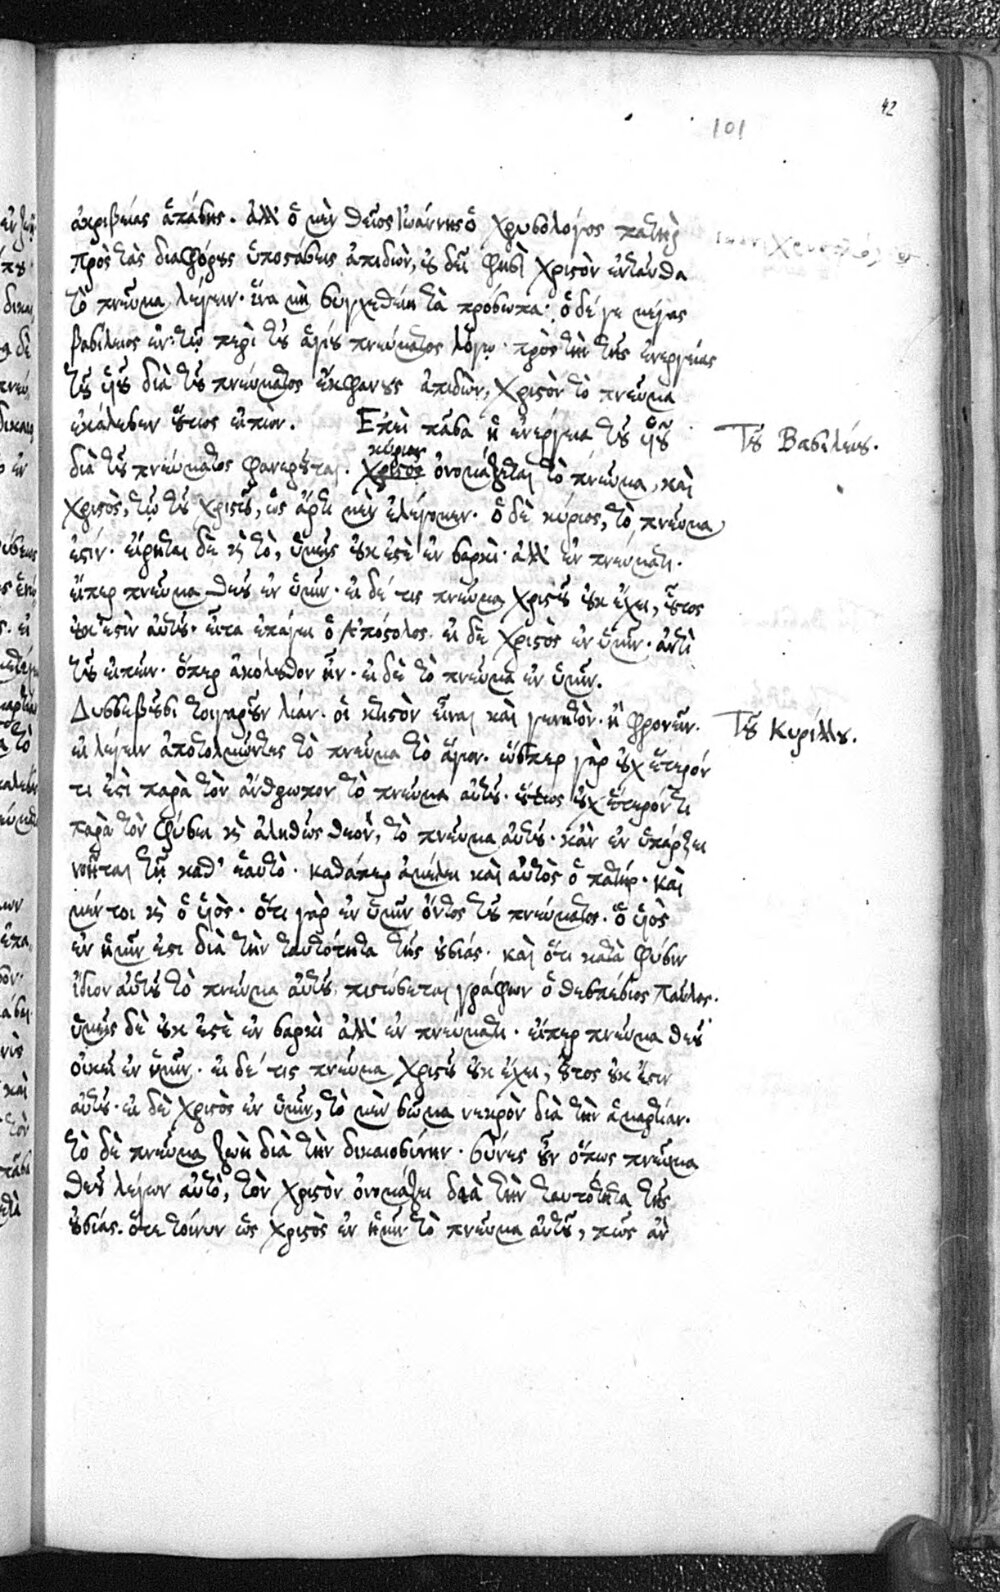 42
101
ἀκριβείας ἁπάσης. ἀλλ' ὁ μὲν θεῖος Ἰωάννης ὁ χρυσολόγος πατὴρ
πρὸς τὰς διαφόρους ὑποστάσεις ἀπιδὼν, οὐ δεῖ φησὶ χριστὸν ἐνταῦθα
τὸ πνεῦμα λέγειν· ἵνα μὴ συγχεθείη τὰ πρόσωπα· ὁ δέ γε μέγας
βασίλειος ἐν τῷ περὶ τοῦ ἁγίου πνεύματος λόγῳ· πρὸς τὴν τῆς ἐνεργείας
τοῦ υἱοῦ διὰ τοῦ πνεύματος ἔκφανσιν ἀπιδὼν, χριστὸν τὸ πνεῦμα
ἐκάλεσεν οὕτως εἰπών. Ἐπεὶ πᾶσα ἡ ἐνέργεια τοῦ υἱοῦ
Τοῦ Βασιλείου.
διὰ τοῦ πνεύματος φανεροῦται. κύριος ὀνομάζεται τὸ πνεῦμα, καὶ
χριστὸς, τῷ τοῦ χριστοῦ, ὡς ἄρτι μὲν ἐλέγομεν. ὁ δὲ κύριος, τὸ πνεῦμα
ἐστίν. εἴρηται δὲ κὶ τὸ, ὑμεῖς οὐκ ἐστὲ ἐν σαρκὶ ἀλλ' ἐν πνεύματι.
εἴπερ πνεῦμα θεοῦ ἐν ὑμῖν. εἰ δέ τις πνεῦμα χριστοῦ οὐκ ἔχει, οὗτος
οὐκ ἐστὶν αὐτοῦ. εἶτα ἐπάγει ὁ Ἀπόστολος. εἰ δὲ χριστὸς ἐν ὑμῖν. ἀντὶ
τοῦ εἰπεῖν. ὅπερ ἀκόλουθον ἦν. εἰ δὲ τὸ πνεῦμα ἐν ὑμῖν.
Δυσσεβοῦσι τοιγαροῦν λίαν. οἱ κτιστὸν εἶναι καὶ γενητὸν. ἢ φρονεῖν.
Τοῦ Κυρίλλου.
εἰ λέγειν ἀποτολμῶντες τὸ πνεῦμα τὸ ἅγιον. ὥσπερ γὰρ οὐχ ἕτερόν
τι ἐστὶ παρὰ τὸν ἄνθρωπον τὸ πνεῦμα αὐτοῦ. οὕτως οὐχ ἕτερόν τι
παρὰ τὸν φύσει κὶ ἀληθῶς θεὸν, τὸ πνεῦμα αὐτοῦ. κἂν ἐν ὑπάρξει
νοῆται τῇ καθ' ἑαυτὸ. καθάπερ ἀμέλει καὶ αὐτὸς ὁ πατήρ. καὶ
μέν τοι κὶ ὁ υἱὸς. ὅτι γὰρ ἐν ὑμῖν ὄντος τοῦ πνεύματος. ὁ υἱὸς
ἐν ἡμῖν ἐστι διὰ τὴν ταυτότητα τῆς οὐσίας. καὶ ὅτι κατὰ φύσιν
ἴδιον αὐτοῦ τὸ πνεῦμα αὐτοῦ πιστώσεται γράφων ὁ θεσπέσιος Παῦλος.
ὑμεῖς δὲ οὐκ ἐστὲ ἐν σαρκὶ ἀλλ' ἐν πνεύματι. εἴπερ πνεῦμα θεοῦ
οἰκεῖ ἐν ὑμῖν. εἰ δέ τις πνεῦμα χριστοῦ οὐκ ἔχει, οὗτος οὐκ ἔστιν
αὐτοῦ. εἰ δὲ χριστὸς ἐν ὑμῖν, τὸ μὲν σῶμα νεκρὸν διὰ τὴν ἁμαρτίαν.
τὸ δὲ πνεῦμα ζωὴ διὰ τὴν δικαιοσύνην. σύνες οὖν ὅπως πνεῦμα
θεοῦ λέγων αὐτὸ, τὸν χριστὸν ὀνομάζει διὰ τὴν ταυτότητα τῆς
οὐσίας. ὅτε τοίνυν ὡς χριστὸς ἐν ἡμῖν τὸ πνεῦμα αὐτοῦ, πῶς ἂν